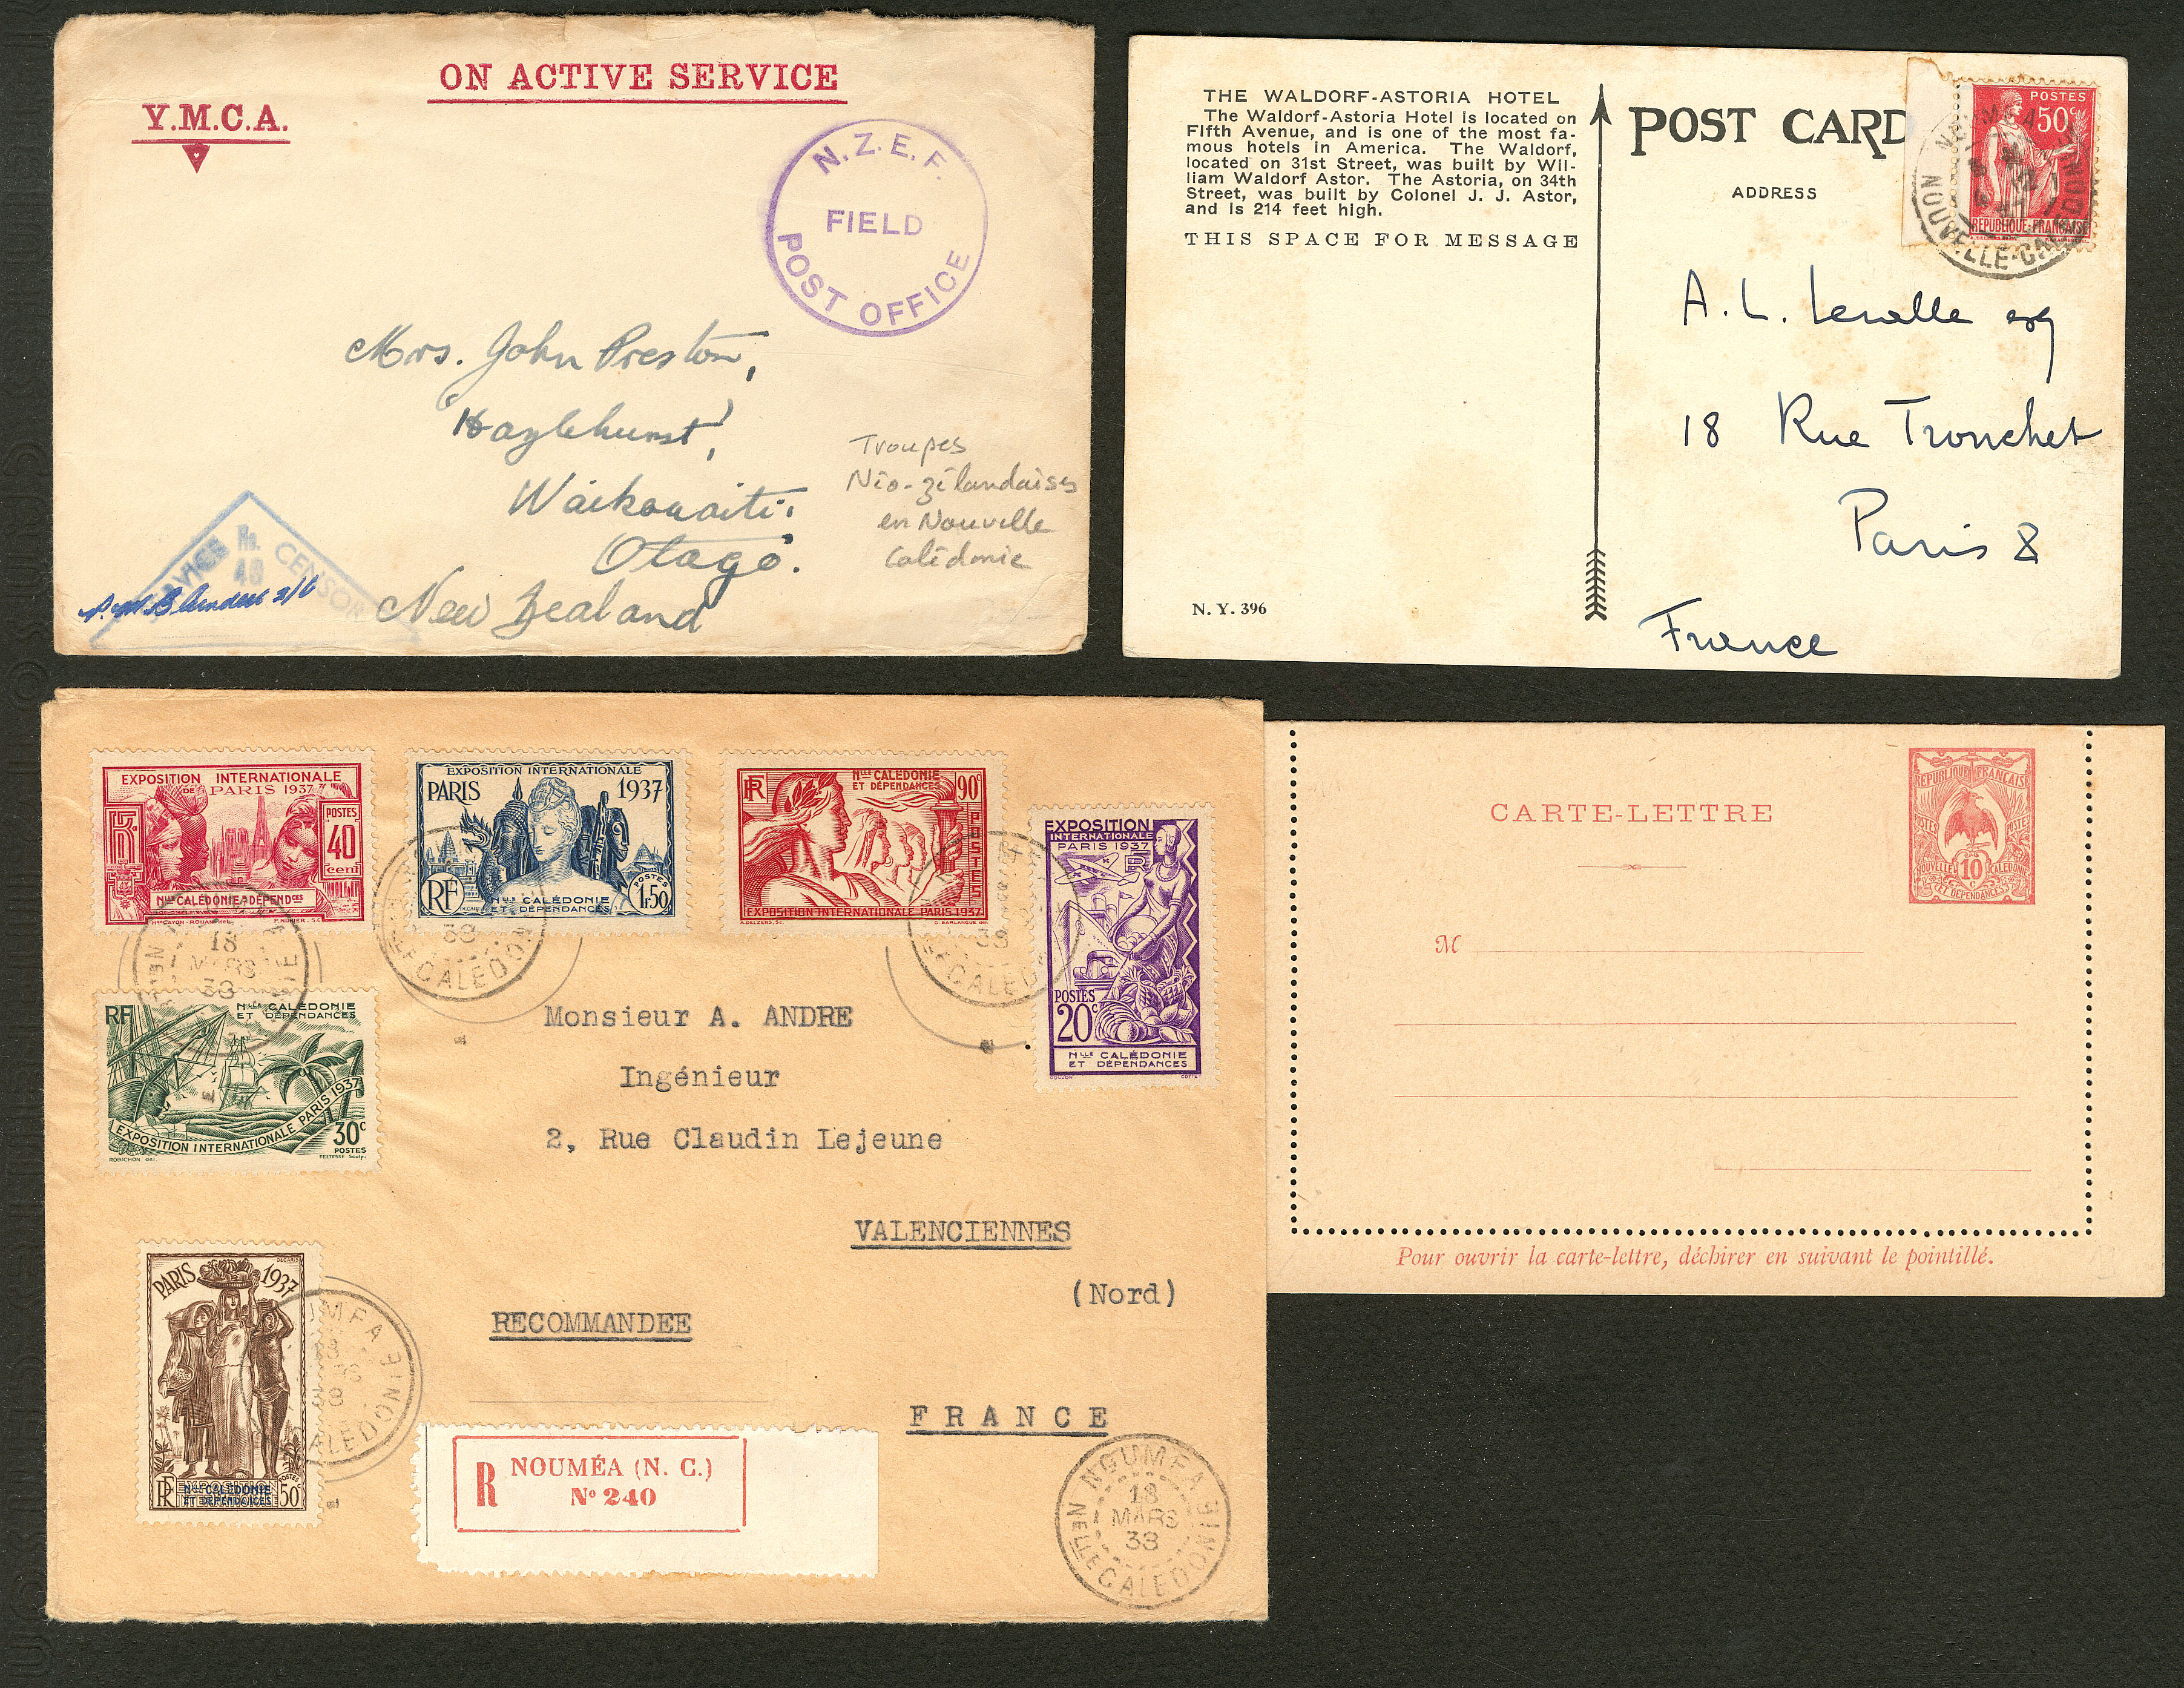 ON ACTIVE SERVICE
Y.M.C.A.
N.Z.E.F.
FIELD
POST OFFICE
Mrs. John Preston,
'Haylehurst',
Waikouaiti,
Otago.
New Zealand
Troupes
Néo-zélandaises
en Nouvelle
Calédonie
No.
CENSOR
THE WALDORF-ASTORIA HOTEL
The Waldorf-Astoria Hotel is located on
Fifth Avenue, and is one of the most fa-
mous hotels in America. The Waldorf,
located on 31st Street, was built by Wil-
liam Waldorf Astor. The Astoria, on 34th
Street, was built by Colonel J. J. Astor,
and is 214 feet high.
THIS SPACE FOR MESSAGE
N. Y. 396
POST CARD
ADDRESS
POSTES
50c
REPUBLIQUE-FRANÇAISE
NOUVELLE-CALEDONIE
A. L.
18 Rue Tronchet
Paris 8
France
EXPOSITION INTERNATIONALE
DE PARIS 1937
POSTES
40
cent
Nlle CALÉDONIE & DÉPENDces
EXPOSITION INTERNATIONALE
PARIS 1937
RF
Nlle CALÉDONIE
ET DÉPENDANCES
POSTES
1f50
RF
Nlle CALÉDONIE
ET DÉPENDANCES
90c
POSTES
EXPOSITION INTERNATIONALE PARIS 1937
EXPOSITION
INTERNATIONALE
PARIS 1937
RF
POSTES
20c
Nlle CALÉDONIE
ET DÉPENDANCES
18
MARS
38
RF
Nlle CALÉDONIE
ET DÉPENDANCES
EXPOSITION INTERNATIONALE PARIS 1937
30c
POSTES
PARIS 1937
RF
Nlle CALÉDONIE
ET DÉPENDANCES
POSTES
50c
Monsieur A. ANDRE
Ingénieur
2, Rue Claudin Lejeune
VALENCIENNES
(Nord)
RECOMMANDEE
FRANCE
R
NOUMÉA (N. C.)
No 240
NOUMEA
18
MARS
38
NELLE CALEDONIE
CARTE-LETTRE
REPUBLIQUE FRANÇAISE
POSTES POSTES
NOUVELLE CALEDONIE
10
c
ET DEPENDANCES
M
Pour ouvrir la carte-lettre, déchirer en suivant le pointillé.